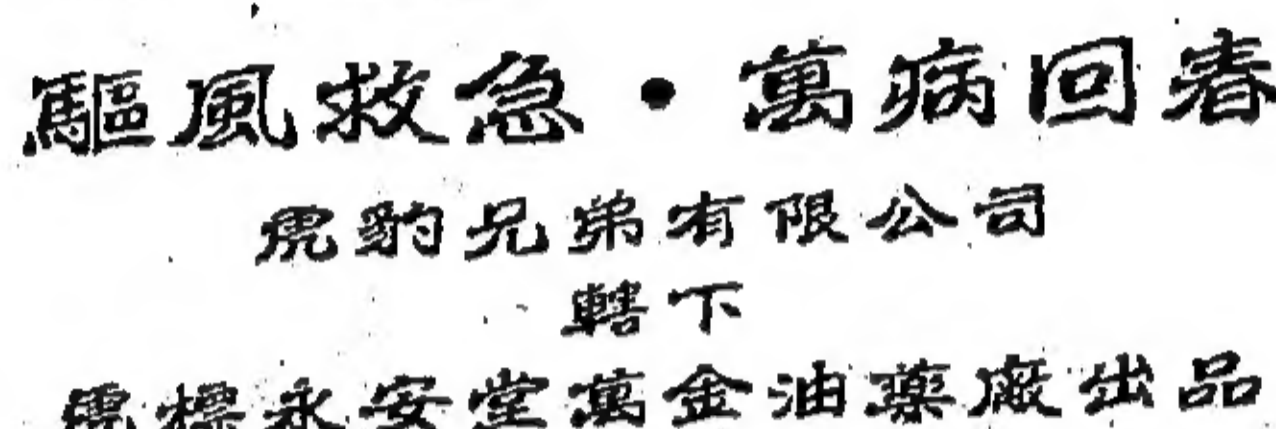 驅風救急・萬病回春
虎豹兄弟有限公司
轄下
虎標永安堂萬金油藥廠出品